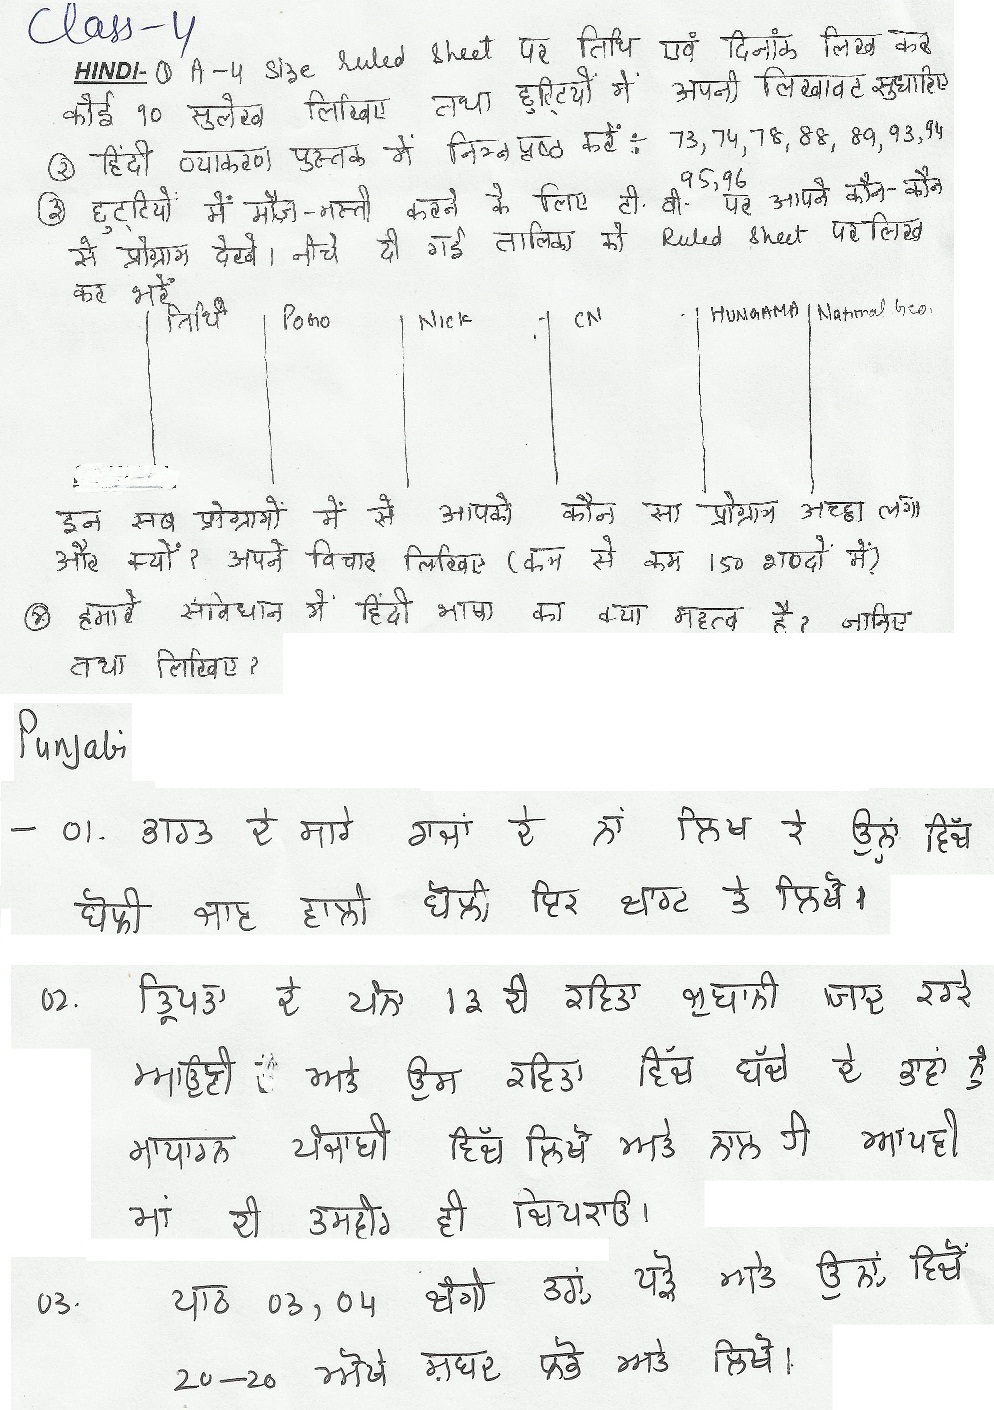 Class-4
HINDI- ① A-4 size Ruled Sheet पर तिथि एवं दिनांक लिख कर
कोई 10 सुलेख लिखिए तथा छुट्टियों में अपनी लिखावट सुधारिए
② हिंदी व्याकरण पुस्तक में निम्न पृष्ठ करें ÷ 73, 74, 78, 88, 89, 93, 94
95, 96
③ छुट्टियों में मौज-मस्ती करने के लिए टी. वी. पर आपने कौन-कौन
से प्रोग्राम देखे। नीचे दी गई तालिका को Ruled Sheet पर लिख
कर भरें
तिथि Pogo Nick CN HUNGAMA National Geo.
इन सब प्रोग्रामों में से आपको कौन सा प्रोग्राम अच्छा लगा
और क्यों? अपने विचार लिखिए (कम से कम 150 शब्दों में)
④ हमारे संविधान में हिंदी भाषा का क्या महत्व है? जानिए
तथा लिखिए?
Punjabi
- 01. ਭਾਰਤ ਦੇ ਸਾਰੇ ਰਾਜਾਂ ਦੇ ਨਾਂ ਲਿਖ ਕੇ ਉਨ੍ਹਾਂ ਵਿੱਚ
ਬੋਲੀ ਜਾਣ ਵਾਲੀ ਬੋਲੀ ਇਕ ਚਾਰਟ ਤੇ ਲਿਖੋ।
02. ਦੇ ਪੰਨਾ 13 ਦੀ ਕਵਿਤਾ ਜ਼ੁਬਾਨੀ ਯਾਦ ਕਰਕੇ
ਆਉਣੀ ਅਤੇ ਉਸ ਕਵਿਤਾ ਵਿੱਚ ਬੱਚੇ ਦੇ ਭਾਵਾਂ ਨੂੰ
ਸਾਧਾਰਨ ਪੰਜਾਬੀ ਵਿੱਚ ਲਿਖੋ ਅਤੇ ਨਾਲ ਹੀ ਆਪਣੀ
ਮਾਂ ਦੀ ਤਸਵੀਰ ਵੀ ਚਿਪਕਾਓ।
03. ਪਾਠ 03, 04 ਚੰਗੀ ਤਰ੍ਹਾਂ ਪੜ੍ਹੋ ਅਤੇ ਉਨ੍ਹਾਂ ਵਿਚੋਂ
20-20 ਔਖੇ ਸ਼ਬਦ ਲਭੋ ਅਤੇ ਲਿਖੋ।